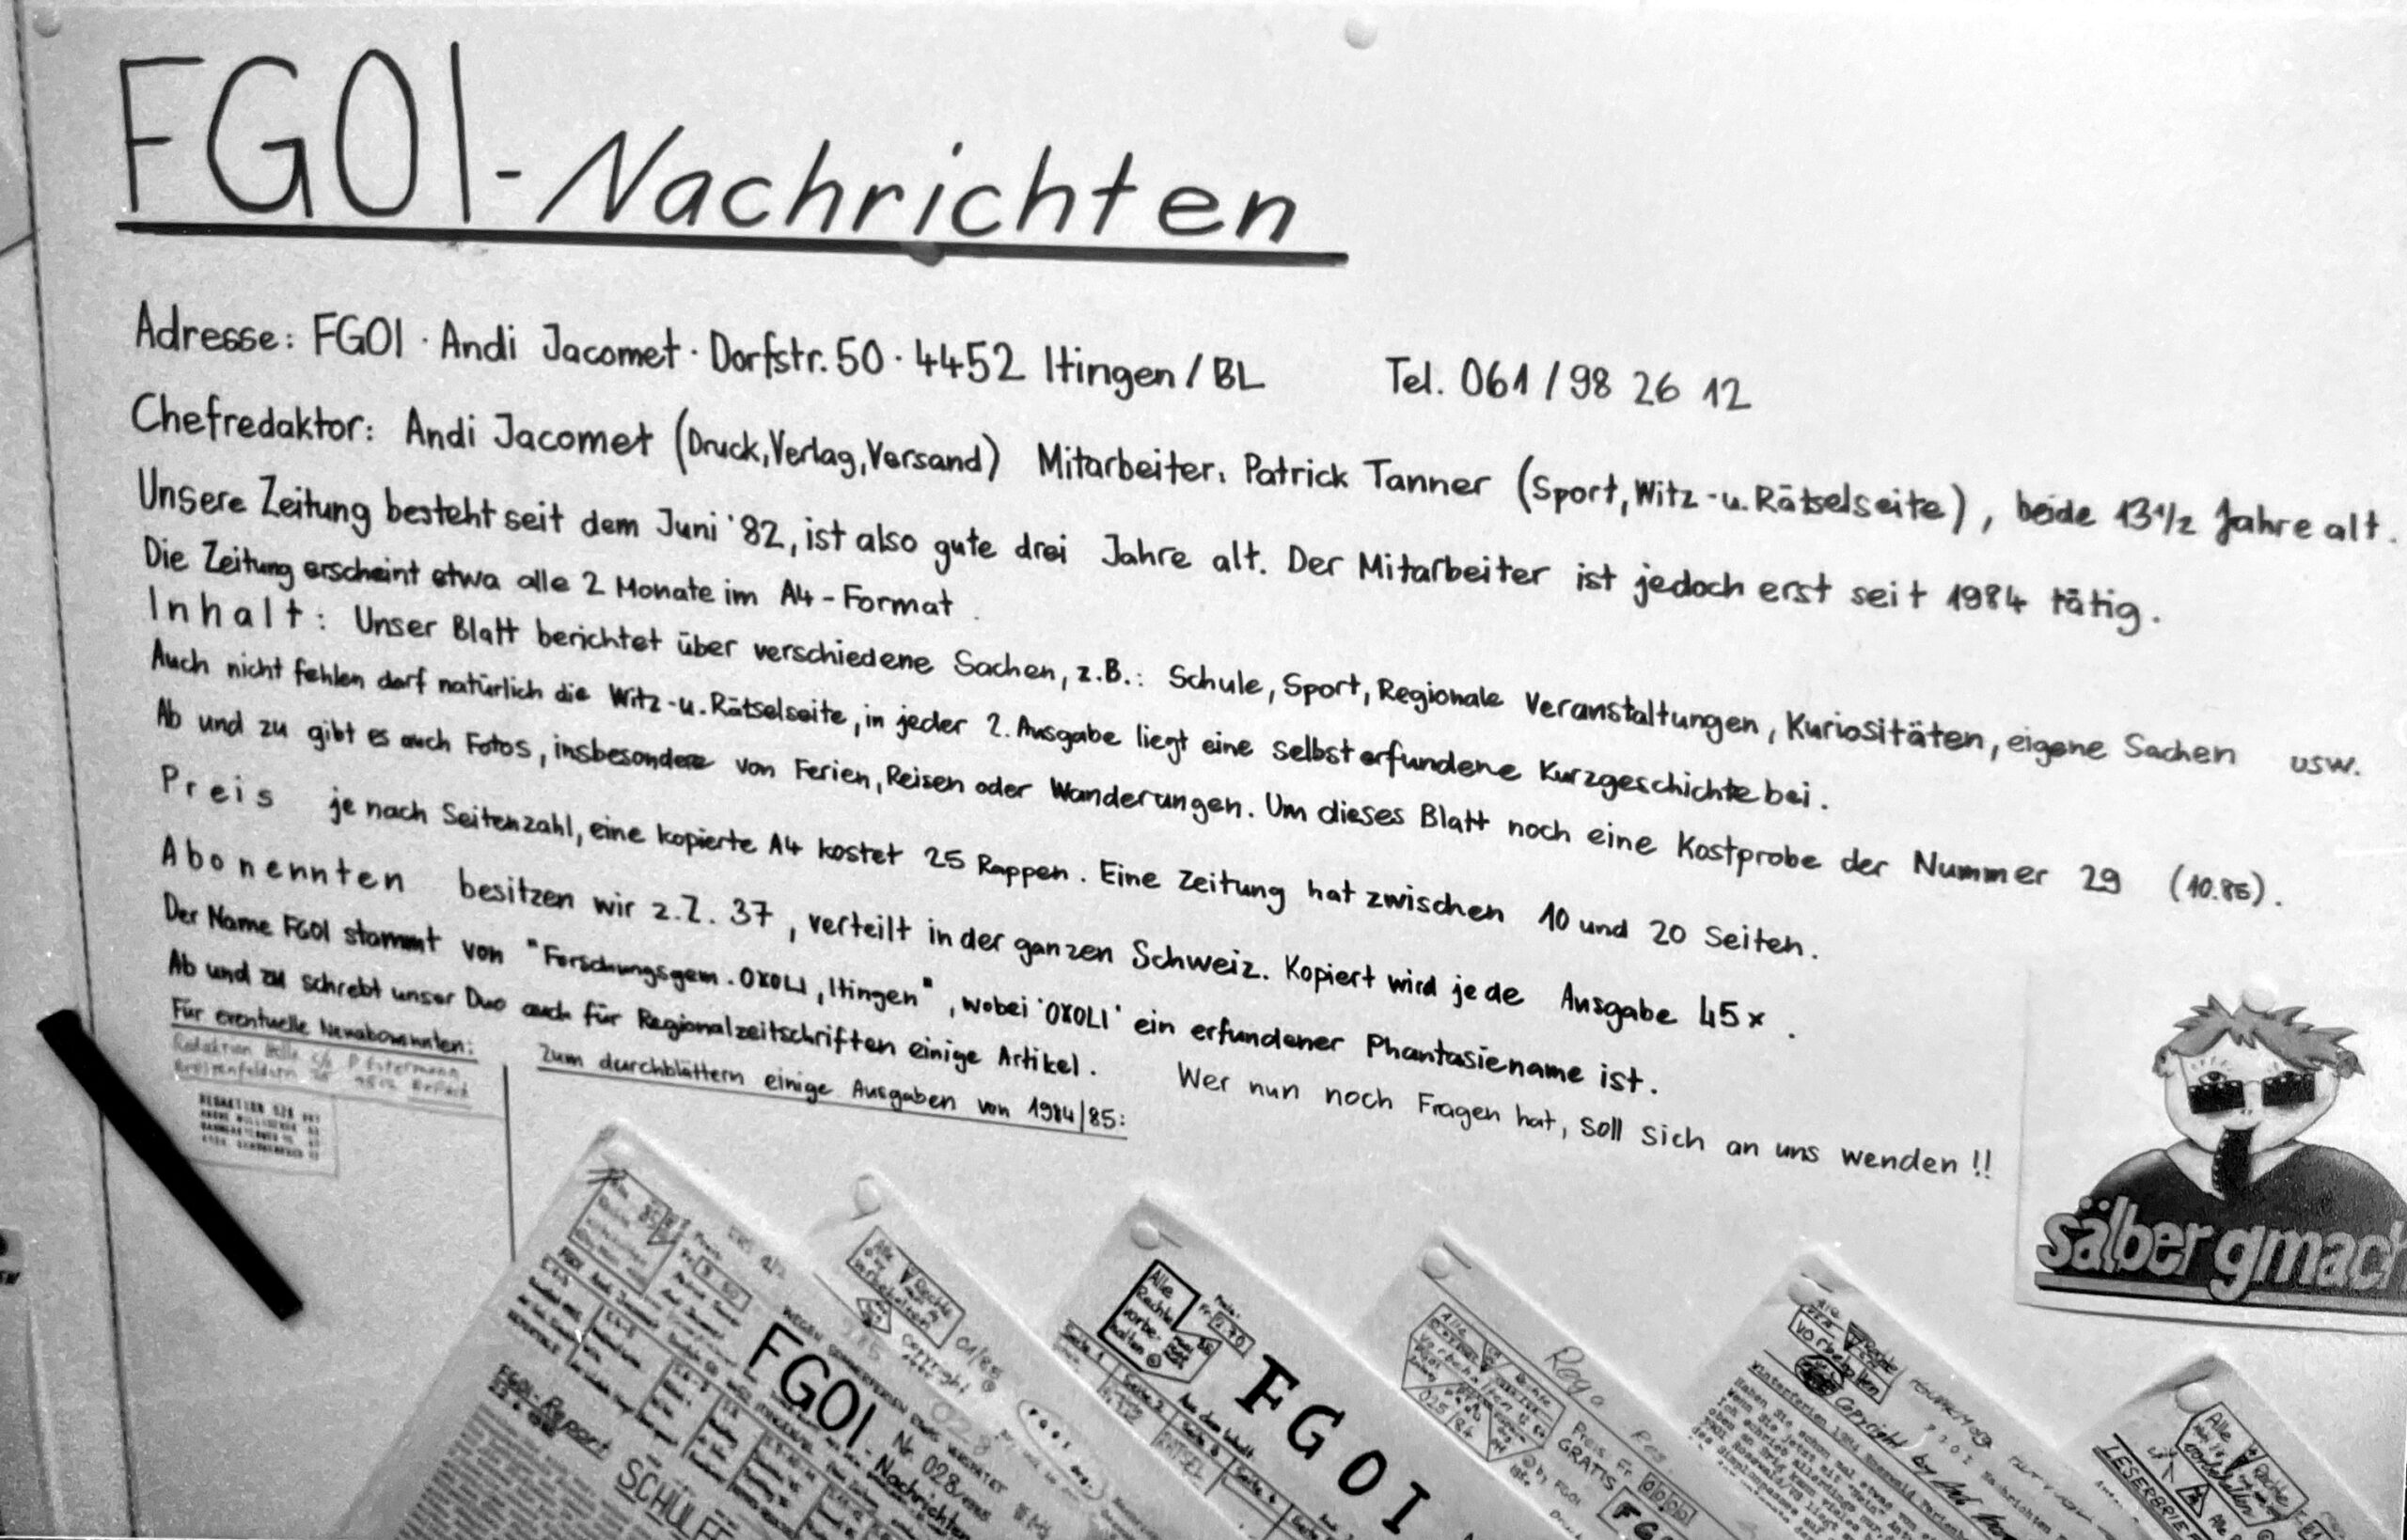 FGOI-Nachrichten
Adresse: FGOI · Andi Jacomet · Dorfstr. 50 · 4452 Itingen / BL Tel. 061 / 98 26 12
Chefredaktor: Andi Jacomet (Druck, Verlag, Versand) Mitarbeiter: Patrick Tanner (Sport, Witz-u. Rätselseite), beide 13 1/2 Jahre alt.
Unsere Zeitung besteht seit dem Juni '82, ist also gute drei Jahre alt. Der Mitarbeiter ist jedoch erst seit 1984 tätig.
Die Zeitung erscheint etwa alle 2 Monate im A4-Format.
Inhalt: Unser Blatt berichtet über verschiedene Sachen, z.B.: Schule, Sport, Regionale Veranstaltungen, Kuriositäten, eigene Sachen usw.
Auch nicht fehlen darf natürlich die Witz-u. Rätselseite, in jeder 2. Ausgabe liegt eine selbsterfundene Kurzgeschichte bei.
Ab und zu gibt es auch Fotos, insbesondere von Ferien, Reisen oder Wanderungen. Um dieses Blatt noch eine Kostprobe der Nummer 29 (10.85).
Preis je nach Seitenzahl, eine kopierte A4 kostet 25 Rappen. Eine Zeitung hat zwischen 10 und 20 Seiten.
Abonennten besitzen wir z.Z. 37, verteilt in der ganzen Schweiz. Kopiert wird jede Ausgabe 45x.
Der Name FGOI stammt von "Forschungsgem. OXOLI, Itingen", wobei 'OXOLI' ein erfundener Phantasiename ist.
Ab und zu schrebt unser Duo auch für Regionalzeitschriften einige Artikel. Wer nun noch Fragen hat, soll sich an uns wenden!!
Für eventuelle Neuabonnnten:
Zum durchblättern einige Ausgaben von 1984/85:
sälber gmach
FGOI-Nachrichten
Nr. 028
FGOI-Report
SCHÜLE
Alle Rechte vorbehalten ©
Copyright
01/85
Alle Rechte vorbehalten ©
Preis: Fr.
Seite 1
Seite 2
Aus dem Inhalt
FGOI
025/84
© by FGOI
Rega
Preis: Fr.
GRATIS
Rechte vorbehalten
Copyright by
Winterferien 1984
Alle Rechte vorbehalten
LESERBRIE